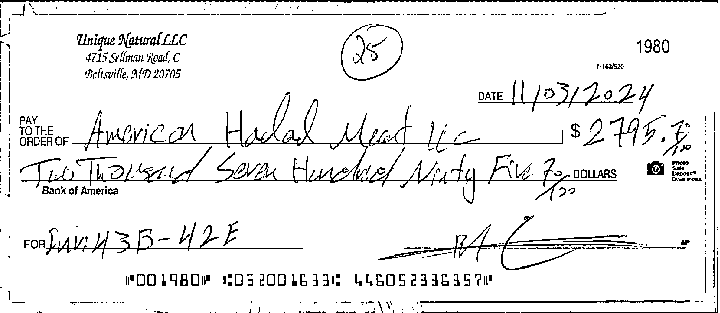 Unique Natural LLC
4715 Sellman Road, C
Beltsville, MD 20705
25
1980
7-163/520
DATE 11/03/2024
PAY TO THE ORDER OF American Halal Meat llc $ 2795.
Two Thousand Seven Hundred Ninty Five DOLLARS
Photo Safe Deposit
Bank of America
FOR Inv: 43B-42E
⑈001980⑈ ⑆052001633⑆ 446052336357⑈